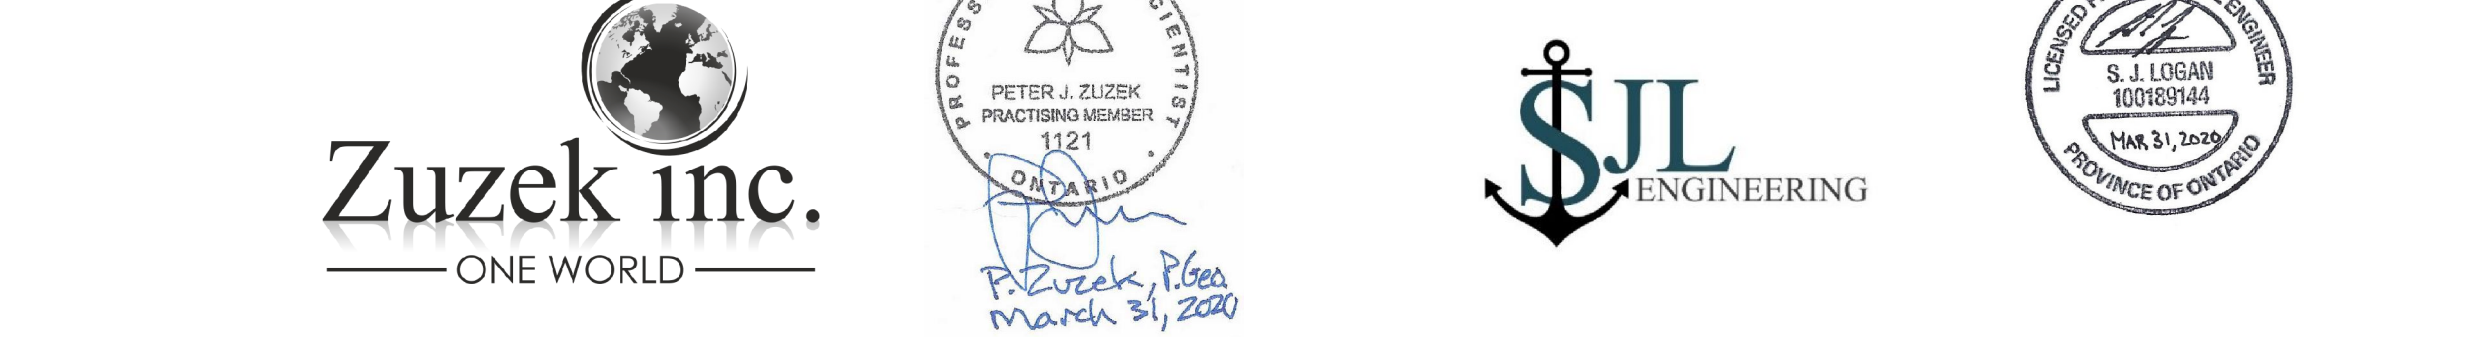 Zuzek inc.
ONE WORLD
PROFESS
CIENTIST
PETER J. ZUZEK
PRACTISING MEMBER
1121
ONTARIO
P. Zuzek, P.Geo.
March 31, 2020
SJL
ENGINEERING
LICENSED
ENGINEER
S. J. LOGAN
100189144
MAR 31, 2020
PROVINCE OF ONTARIO